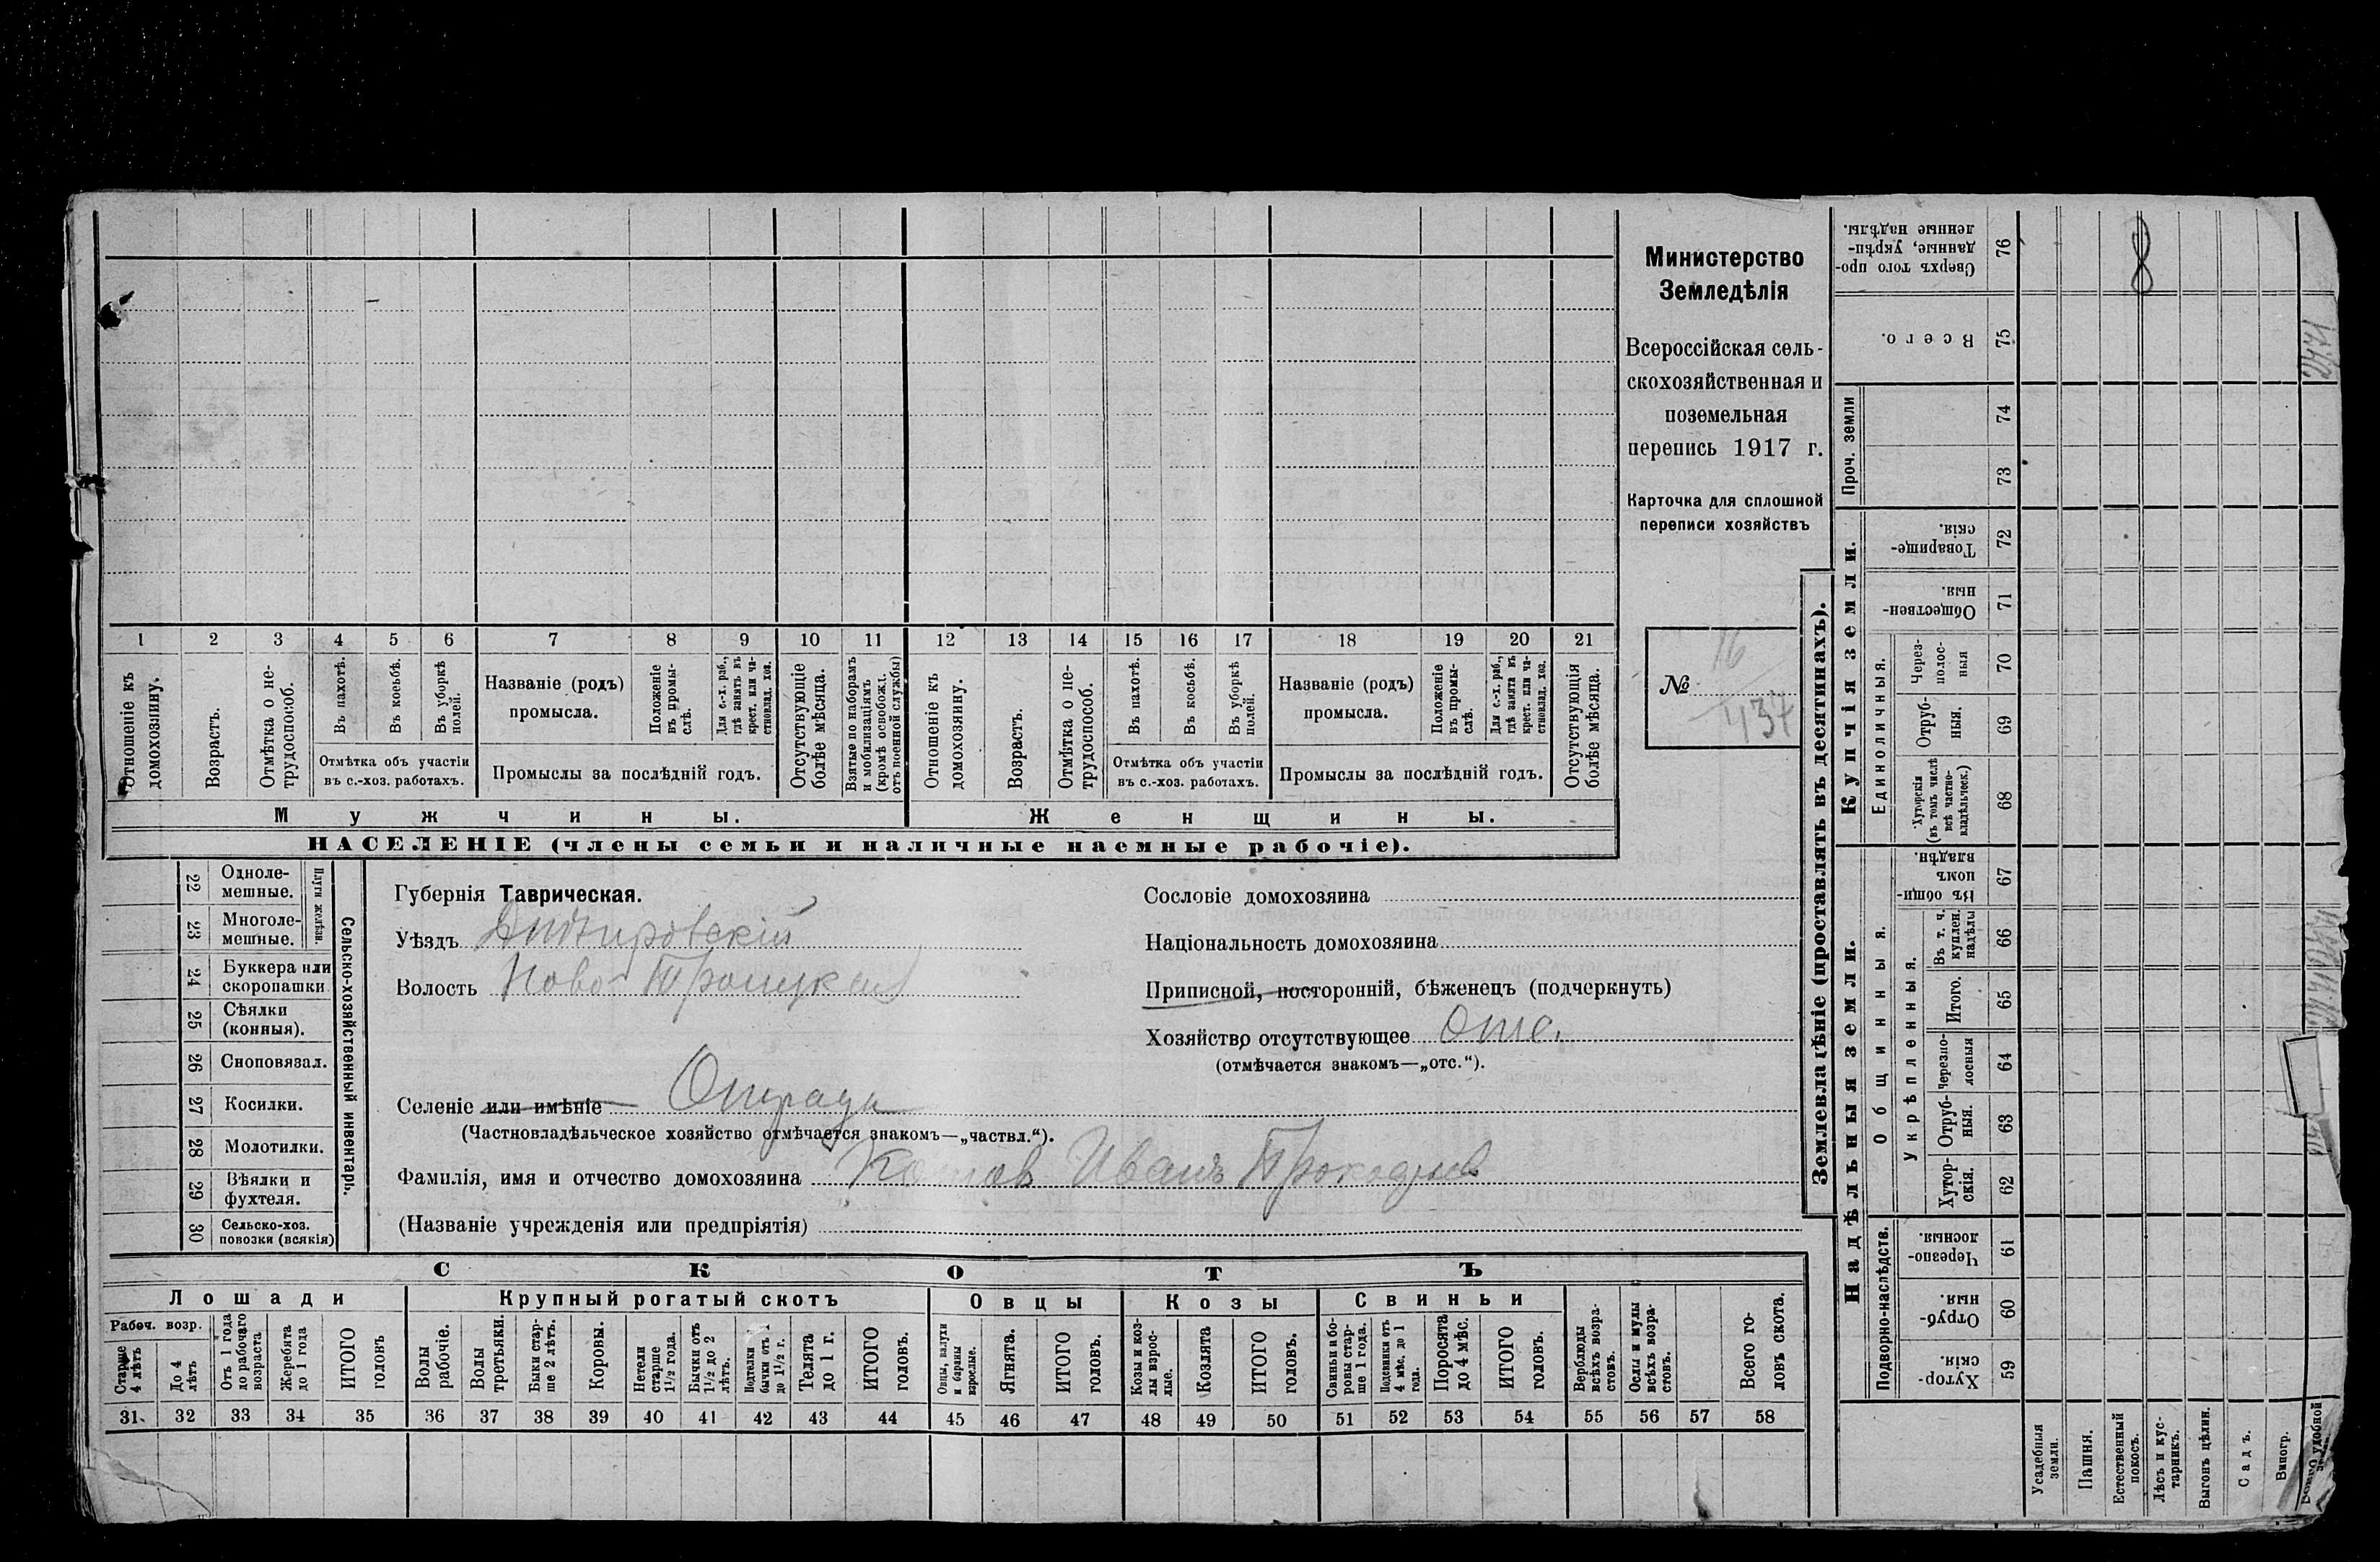 Министерство
Земледѣлія
Всероссійская сель-
скохозяйственная и
поземельная
перепись 1917 г.
Карточка для сплошной
переписи хозяйствъ
№ 16
437
1 2 3 4 5 6 7 8 9 10 11 12 13 14 15 16 17 18 19 20 21
Отношеніе къ домохозяину.
Возрастъ.
Отмѣтка о не-
трудоспособ.
Въ пахотѣ.
Въ косьбѣ.
Въ уборкѣ
полей.
Отмѣтка объ участіи
въ с.-хоз. работахъ.
Названіе (родъ)
промысла.
Положеніе
въ промы-
слѣ.
Для с.-х. раб.,
гдѣ занятъ въ
крест. или ча-
стновлад. хоз.
Промыслы за послѣдній годъ.
Отсутствующіе
болѣе мѣсяца.
Взятые по наборамъ
и мобилизаціямъ
(кромѣ освобожд.
отъ военной службы)
Отношеніе къ
домохозяину.
Возрастъ.
Отмѣтка о не-
трудоспособ.
Въ пахотѣ.
Въ косьбѣ.
Въ уборкѣ
полей.
Отмѣтка объ участіи
въ с.-хоз. работахъ.
Названіе (родъ)
промысла.
Положеніе
въ промы-
слѣ.
Для с.-х. раб.,
гдѣ занята въ
крест. или ча-
стновлад. хоз.
Промыслы за послѣдній годъ.
Отсутствующія
болѣе мѣсяца.
Мужчины.
Женщины.
НАСЕЛЕНІЕ (члены семьи и наличные наемные рабочіе).
22 Одноле-
мешные.
23 Многоле-
мешные.
Плуги желѣзн.
24 Буккера или
скоропашки
25 Сѣялки
(конныя).
26 Сноповязал.
27 Косилки.
28 Молотилки.
29 Вѣялки и
фухтеля.
30 Сельско-хоз.
повозки (всякія)
Сельско-хозяйственный инвентарь.
Губернія Таврическая.
Уѣздъ Днѣпровскій
Волость Ново Троицкая
Селеніе или имѣніе Отрада
(Частновладѣльческое хозяйство отмѣчается знакомъ—„частвл.“).
Фамилія, имя и отчество домохозяина Иванъ
(Названіе учрежденія или предпріятія)
Сословіе домохозяина
Національность домохозяина
Приписной, посторонній, бѣженецъ (подчеркнуть)
Хозяйство отсутствующее Отс.
(отмѣчается знакомъ—„отс.“).
СКОТЪ
Лошади
Рабоч. возр.
Старше
4 лѣтъ
До 4
лѣтъ
Отъ 1 года
до рабочаго
возраста
Жеребята
до 1 года
ИТОГО
головъ
Крупный рогатый скотъ
Волы
рабочіе.
Волы
третьяки.
Быки стар-
ше 2 лѣтъ.
Коровы.
Нетели
старше
1½ года.
Бычки отъ
1½ до 2
лѣтъ.
Подтелки и
бычки отъ 1
до 1½ г.
Телята
до 1 г.
ИТОГО
головъ.
Овцы
Овцы, валухи
и бараны
взрослые.
Ягнята.
ИТОГО
головъ.
Козы
Козы и коз-
лы взрос-
лые.
Козлята
ИТОГО
головъ.
Свиньи
Свиньи и бо-
ровы стар-
ше 1 года.
Подсвинки отъ
4 мѣс. до 1
года.
Поросята
до 4 мѣс.
ИТОГО
головъ.
Верблюды
всѣхъ возра-
стовъ.
Ослы и мулы
всѣхъ возра-
стовъ.
Всего го-
ловъ скота.
31 32 33 34 35 36 37 38 39 40 41 42 43 44 45 46 47 48 49 50 51 52 53 54 55 56 57 58
Землевладѣніе (проставлять въ десятинахъ).
Надѣльныя земли.
Подворно-наслѣдств.
Хутор-
скія. 59
Отруб-
ныя. 60
Черезпо-
лосныя. 61
Общинныя.
Укрѣпленныя.
Хутор-
скія. 62
Отруб-
ныя. 63
Черезпо-
лосныя 64
Итого. 65
Въ т. ч.
куплен.
надѣлы 66
Въ общи-
номъ
владѣн. 67
Купчія земли.
Единоличныя.
Хуторскія
(въ томъ числѣ
всѣ частно-
владѣльческ.) 68
Отруб-
ныя. 69
Через-
полос-
ныя 70
Обществен-
ныя. 71
Товарище-
скія. 72
Проч. земли
73
74
Всего. 75
Сверхъ того про-
данные, укрѣп-
ленные надѣлы. 76
Усадебныя
земли.
Пашня.
Естественный
покосъ.
Лѣсъ и кус-
тарникъ.
Выгонъ цѣлин.
Садъ.
Виногр.
удобной